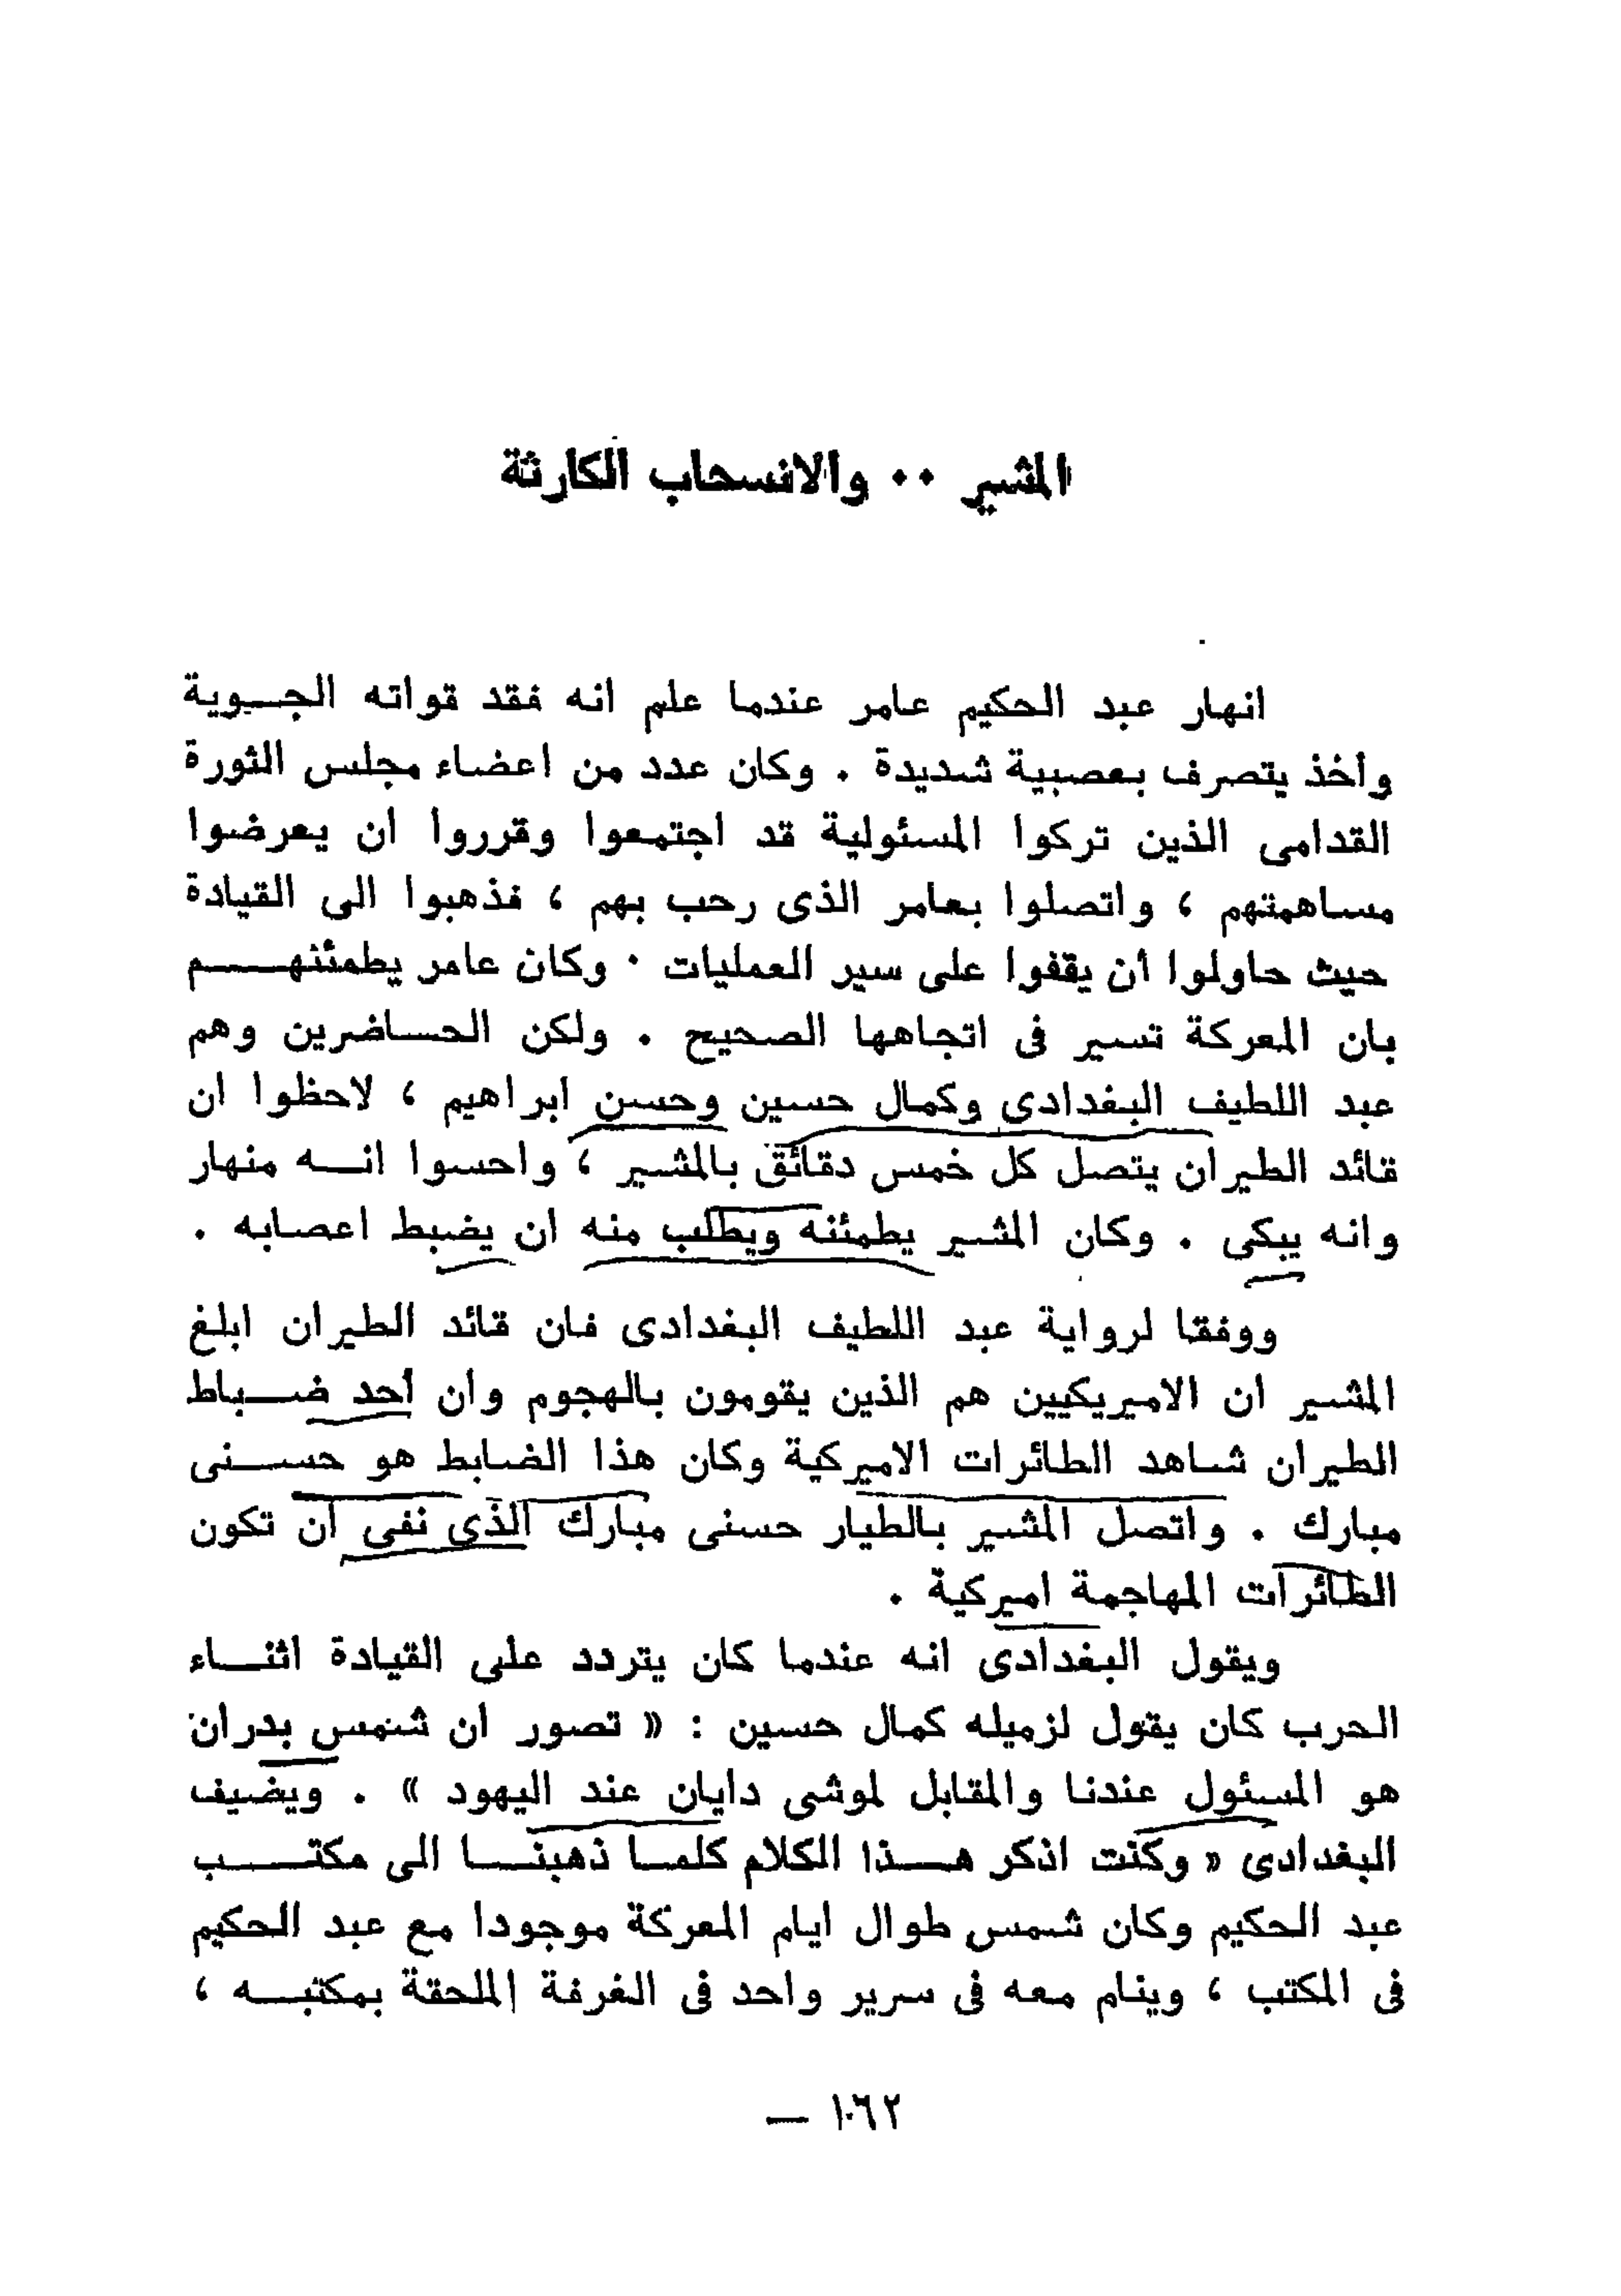 المشير ٠٠ والانسحاب الكارثة
انهار عبد الحكيم عامر عندما علم انه فقد قواته الجوية
وأخذ يتصرف بعصبية شديدة . وكان عدد من اعضاء مجلس الثورة
القدامى الذين تركوا المسئولية قد اجتمعوا وقرروا ان يعرضوا
مساهمتهم ، واتصلوا بعامر الذى رحب بهم ، فذهبوا الى القيادة
حيث حاولوا أن يقفوا على سير العمليات . وكان عامر يطمئنهم
بان المعركة تسير فى اتجاهها الصحيح . ولكن الحاضرين وهم
عبد اللطيف البغدادى وكمال حسين وحسن ابراهيم ، لاحظوا ان
قائد الطيران يتصل كل خمس دقائق بالمشير ، واحسوا انه منهار
وانه يبكى . وكان المشير يطمئنه ويطلب منه ان يضبط اعصابه .
ووفقا لرواية عبد اللطيف البغدادى فان قائد الطيران ابلغ
المشير ان الاميريكيين هم الذين يقومون بالهجوم وان أحد ضباط
الطيران شاهد الطائرات الاميركية وكان هذا الضابط هو حسنى
مبارك . واتصل المشير بالطيار حسنى مبارك الذى نفى ان تكون
الطائرات المهاجمة اميركية .
ويقول البغدادى انه عندما كان يتردد على القيادة اثناء
الحرب كان يقول لزميله كمال حسين : « تصور ان شمس بدران
هو المسئول عندنا والمقابل لموشى دايان عند اليهود » . ويضيف
البغدادى « وكنت اذكر هذا الكلام كلما ذهبنا الى مكتب
عبد الحكيم وكان شمس طوال ايام المعركة موجودا مع عبد الحكيم
فى المكتب ، وينام معه فى سرير واحد فى الغرفة الملحقة بمكتبه ،
١٠٦٢ —